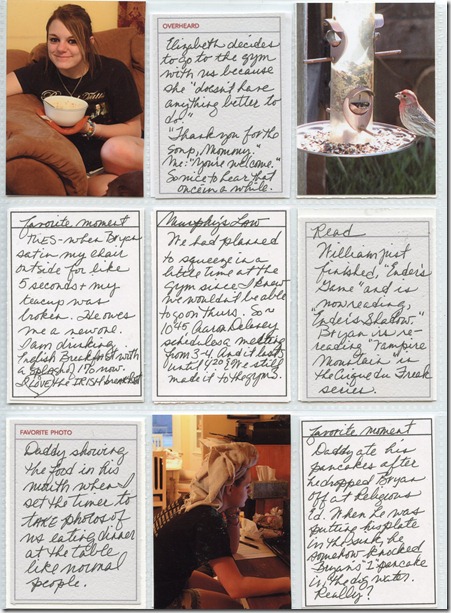 OVERHEARD
Elizabeth decides
to go to the gym
with us because
she "doesn't have
anything better to
do."
"Thank you for the
soup, Mommy."
Me: "You're welcome."
So nice to hear that
once in a while.
Favorite moment
TUES-when Bryan
sat in my chair
outside for like
5 seconds & my
teacup was
broken. He owes
me a new one.
I am drinking
English Breakfast with
a splash of 1% now.
I LOVE the IRISH breakfast
Murphy's Law
We had planned
to squeeze in a
little time at the
gym since I knew
we wouldn't be able
to go on Thurs. So ~
10:45 Aaron
schedules a meeting
from 3-4. And it lasts
until 4:20! We still
made it to the gym.
Read
William just
finished, "Ender's
Game" and is
now reading,
"Ender's Shadow."
Bryan is re-
reading "Vampire
Mountain" is
the Cirque du Freak
series.
FAVORITE PHOTO
Daddy showing
the food in his
mouth when I
set the timer to
TAKE photos of
us eating dinner
at the table
like normal
people.
Favorite moment
Daddy ate his
pancakes after
he dropped Bryan
off at Religious
Ed. When he was
putting his plate
in the sink, he
somehow knocked
Bryan's pancake
in the dig water.
Really?